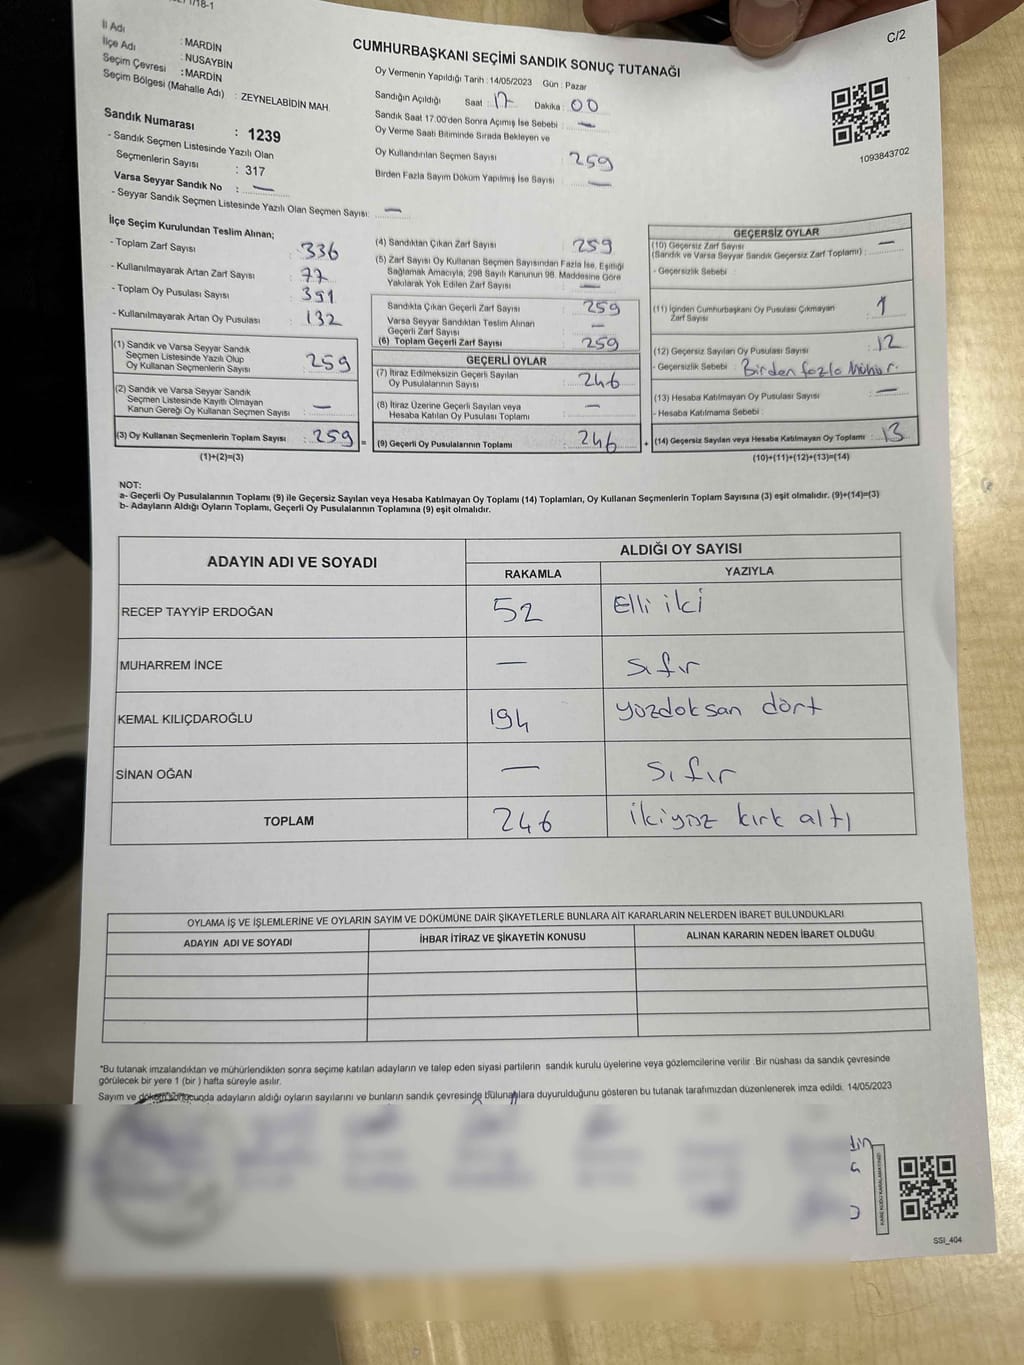 C/2
İl Adı : MARDİN
İlçe Adı : NUSAYBİN
Seçim Çevresi : MARDİN
Seçim Bölgesi (Mahalle Adı) : ZEYNELABİDİN MAH.
Sandık Numarası : 1239
- Sandık Seçmen Listesinde Yazılı Olan
Seçmenlerin Sayısı : 317
Varsa Seyyar Sandık No : —
- Seyyar Sandık Seçmen Listesinde Yazılı Olan Seçmen Sayısı: —
CUMHURBAŞKANI SEÇİMİ SANDIK SONUÇ TUTANAĞI
Oy Vermenin Yapıldığı Tarih : 14/05/2023 Gün : Pazar
Sandığın Açıldığı Saat : 17 Dakika : 00
Sandık Saat 17:00'den Sonra Açımış İse Sebebi : —
Oy Verme Saati Bitiminde Sırada Bekleyen ve
Oy Kullandırılan Seçmen Sayısı 259
Birden Fazla Sayım Döküm Yapılmış İse Sayısı : —
1093843702
İlçe Seçim Kurulundan Teslim Alınan;
- Toplam Zarf Sayısı : 336
- Kullanılmayarak Artan Zarf Sayısı : 77
- Toplam Oy Pusulası Sayısı : 391
- Kullanılmayarak Artan Oy Pusulası : 132
(1) Sandık ve Varsa Seyyar Sandık
Seçmen Listesinde Yazılı Olup
Oy Kullanan Seçmenlerin Sayısı : 259
(2) Sandık ve Varsa Seyyar Sandık
Seçmen Listesinde Kayıtlı Olmayan
Kanun Gereği Oy Kullanan Seçmen Sayısı : —
(3) Oy Kullanan Seçmenlerin Toplam Sayısı : 259 =
(1)+(2)=(3)
(4) Sandıktan Çıkan Zarf Sayısı : 259
(5) Zarf Sayısı Oy Kullanan Seçmen Sayısından Fazla İse, Eşitliği
Sağlamak Amacıyla, 298 Sayılı Kanunun 98. Maddesine Göre
Yakılarak Yok Edilen Zarf Sayısı : —
Sandıkta Çıkan Geçerli Zarf Sayısı : 259
Varsa Seyyar Sandıktan Teslim Alınan
Geçerli Zarf Sayısı : —
(6) Toplam Geçerli Zarf Sayısı : 259
GEÇERLİ OYLAR
(7) İtiraz Edilmeksizin Geçerli Sayılan
Oy Pusulalarının Sayısı : 246
(8) İtiraz Üzerine Geçerli Sayılan veya
Hesaba Katılan Oy Pusulası Toplamı : —
(9) Geçerli Oy Pusulalarının Toplamı : 246 +
GEÇERSİZ OYLAR
(10) Geçersiz Zarf Sayısı
(Sandık ve Varsa Seyyar Sandık Geçersiz Zarf Toplamı) : —
- Geçersizlik Sebebi :
(11) İçinden Cumhurbaşkanı Oy Pusulası Çıkmayan
Zarf Sayısı : 1
(12) Geçersiz Sayılan Oy Pusulası Sayısı : 12
- Geçersizlik Sebebi : Birden fazla Mühür.
(13) Hesaba Katılmayan Oy Pusulası Sayısı : —
- Hesaba Katılmama Sebebi :
(14) Geçersiz Sayılan veya Hesaba Katılmayan Oy Toplamı : 13
(10)+(11)+(12)+(13)=(14)
NOT:
a- Geçerli Oy Pusulalarının Toplamı (9) ile Geçersiz Sayılan veya Hesaba Katılmayan Oy Toplamı (14) Toplamları, Oy Kullanan Seçmenlerin Toplam Sayısına (3) eşit olmalıdır. (9)+(14)=(3)
b- Adayların Aldığı Oyların Toplamı, Geçerli Oy Pusulalarının Toplamına (9) eşit olmalıdır.
ADAYIN ADI VE SOYADI ALDIĞI OY SAYISI
RAKAMLA YAZIYLA
RECEP TAYYİP ERDOĞAN 52 Elli iki
MUHARREM İNCE — Sıfır
KEMAL KILIÇDAROĞLU 194 yüzdoksan dört
SİNAN OĞAN — Sıfır
TOPLAM 246 ikiyüz kırk altı
OYLAMA İŞ VE İŞLEMLERİNE VE OYLARIN SAYIM VE DÖKÜMÜNE DAİR ŞİKAYETLERLE BUNLARA AİT KARARLARIN NELERDEN İBARET BULUNDUKLARI
ADAYIN ADI VE SOYADI İHBAR İTİRAZ VE ŞİKAYETİN KONUSU ALINAN KARARIN NEDEN İBARET OLDUĞU
*Bu tutanak imzalandıktan ve mühürlendikten sonra seçime katılan adayların ve talep eden siyasi partilerin sandık kurulu üyelerine veya gözlemcilerine verilir. Bir nüshası da sandık çevresinde
görülecek bir yere 1 (bir) hafta süreyle asılır.
Sayım ve döküm sonucunda adayların aldığı oyların sayılarını ve bunların sandık çevresinde bulunanlara duyurulduğunu gösteren bu tutanak tarafımızdan düzenlenerek imza edildi. 14/05/2023
KARE KODU KARALAMAYINIZ!
SSI_404